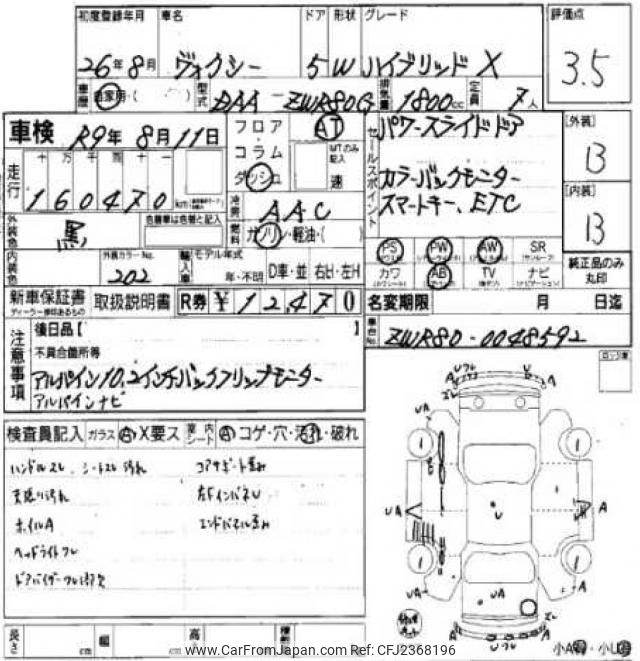 初度登録年月 車名 ドア 形状 グレード 評価点
26年8月 ヴォクシー 5 W ハイブリッド X 3.5
車歴 自家用・( ) 型式 DAA-ZWR80G 排気量 1800cc 定員 7人
車検 R9年8月11日 フロア AT セールスポイント パワースライドドア [外装]
コラム MTのみ記入 B
走行 十万千百十一 ダッシュ 速 カラーバックモニター
160470 km 冷房 AAC スマートキー、ETC [内装]
外装色 黒 色替車は色替と記入 燃料 ガソリン・軽油・( ) B
内装色 外装カラーNo. 202 輸入車 モデル年式 年・不明 D車・並 右H・左H
PS PW AW SR
カワ AB TV ナビ 純正品のみ丸印
新車保証書 取扱説明書 R券 ¥12,470 名変期限 月 日迄
ディーラー捺印あるもの
注意事項 後日品【 】 車台No. ZWR80-0048592
不具合箇所等
アルパイン10.2インチバックフリップモニター
アルパインナビ
検査員記入 ガラス A X要ス 室内 シート A コゲ・穴・汚れ・破れ
ハンドルスレ、シートスレ汚れ コアサポート歪み
天張り汚れ 右FインパネU
ホイルA エンドパネル歪み
ヘッドライトフレ
長さ cm 幅 cm 高さ
www.CarFromJapan.com Ref: CFJ2368196